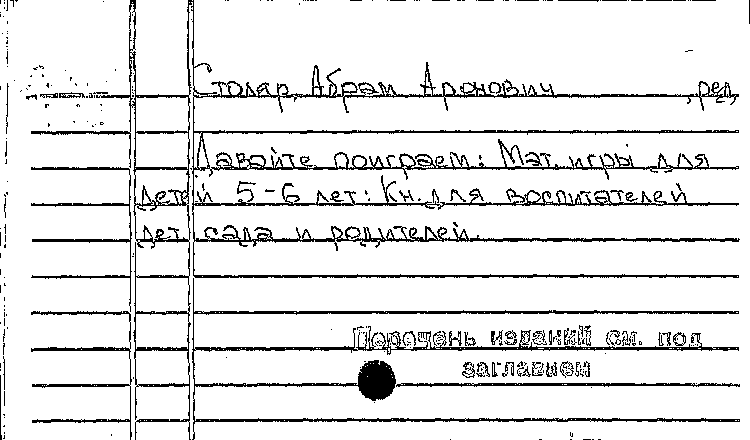 Столяр, Абрам Аронович , ред.
Давайте поиграем: Мат. игры для
детей 5-6 лет: Кн. для воспитателей
дет. сада и родителей.
Перечень изданий см. под
заглавием